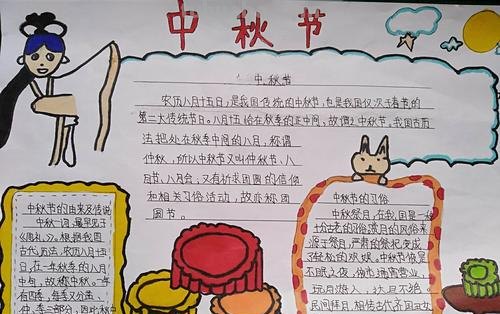 中秋节
中秋节
农历八月十五日,是我国传统的中秋节,也是我国仅次于春节的
第二大传统节日。八月十五恰在秋季的正中间,故谓之中秋节。我国古历
法把处在秋季中间的八月,称谓
仲秋,所以中秋节又叫仲秋节、八
月节、八月会;又有祈求团圆的信仰
和相关习俗活动,故亦称团
圆节。
中秋节的由来及传说
中秋一词,最早见于
《周礼》。根据我国
古代历法,农历八月十五
日,在一年秋季的八月
中旬,故称中秋。一年
有四季,每季又分孟、
仲、季三部分,因此秋中
中秋节的习俗
中秋祭月,在我国是一种
十分古老的习俗。赏月的风俗来
源于祭月,严肃的祭祀变成
了轻松的欢娱。中秋节夜是
不眠之夜,夜市通宵营业,
玩月游人,达旦不绝。
民间拜月,相传古代齐国丑女